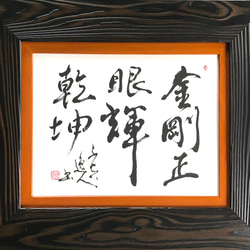 金剛正
眼輝
乾坤